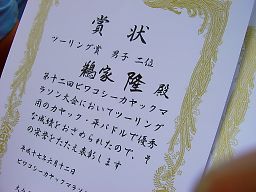 賞状
ツーリング賞 男子 二位
鶴家 隆 殿
第十二回ビワコシーカヤックマ
ラソン大会においてツーリング
用のカヤック・平パドルで優秀
な成績をおさめられたので、そ
の栄誉をたたえ表彰します
平成十七年六月十二日
ビワコシーカヤックマラソン